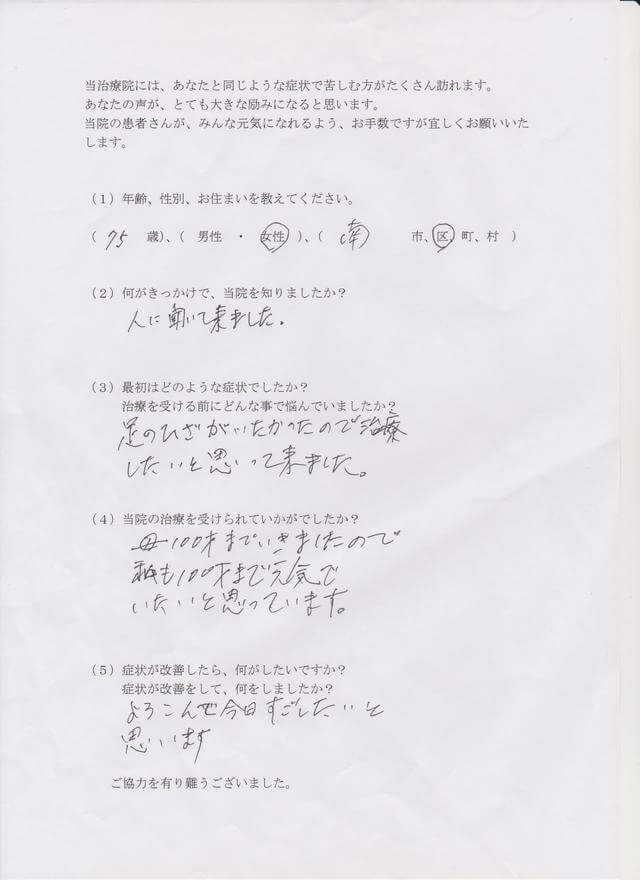 当治療院には、あなたと同じような症状で苦しむ方がたくさん訪れます。
あなたの声が、とても大きな励みになると思います。
当院の患者さんが、みんな元気になれるよう、お手数ですが宜しくお願いいた
します。
（1）年齢、性別、お住まいを教えてください。
（ 75 歳）、（ 男性 ・ 女性 ）、（ 南 市、区、町、村 ）
（2）何がきっかけで、当院を知りましたか？
人に聞いて来ました。
（3）最初はどのような症状でしたか？
治療を受ける前にどんな事で悩んでいましたか？
足のひざがいたかったので治療
したいと思って来ました。
（4）当院の治療を受けられていかがでしたか？
母100才までいきましたので
私も100才まで元気で
いたいと思っています。
（5）症状が改善したら、何がしたいですか？
症状が改善をして、何をしましたか？
よろこんで今日すごしたいと
思います
ご協力を有り難うございました。